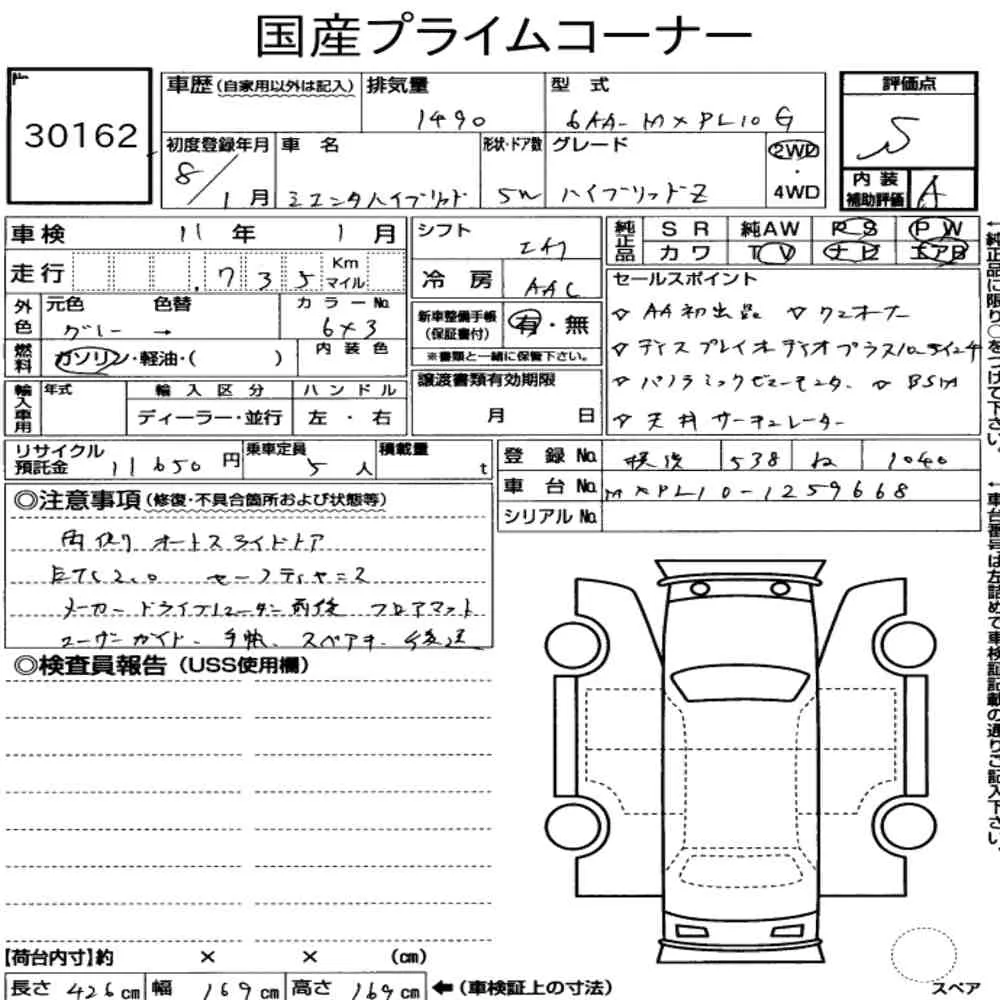 国産プライムコーナー
No
30162
車歴(自家用以外は記入)
排気量
1490
型 式
6AA-MXPL10G
評価点
S
初度登録年月
8/1月
車 名
シエンタハイブリッド
形状・ドア数
5W
グレード
ハイブリッドZ
2WD
・
4WD
内装
補助評価
A
車検 11年 1月
走行 .735 Km マイル
シフト
冷房 AAC
純正品
SR 純AW PS PW
カワ TV ナビ エアB
外色
元色 色替 カラーNo.
グレー → 6X3
燃料
ガソリン・軽油・( )
内装色
新車整備手帳
(保証書付)
有・無
※書類と一緒に保管下さい。
セールスポイント
▽ AA初出品 ▽ワンオーナー
▽ディスプレイオーディオプラス10.5インチ
▽パノラミックビューモニター ▽BSM
▽天井サーキュレーター
輸入車用
年式
輸入区分
ハンドル
ディーラー・並行
左・右
譲渡書類有効期限
月 日
リサイクル
預託金
11650円
乗車定員
5人
積載量
t
登録No. 横浜 538 ね 1040
車台No. MXPL10-1259668
シリアルNo.
◎注意事項(修復・不具合箇所および状態等)
両側オートスライドドア
ETC2.0 セーフティセンス
メーカードライブレコーダー前後 フロアマット
ユーザーガイド、手帳、スペアキー後送
◎検査員報告(USS使用欄)
【荷台内寸】約 × × (cm)
長さ 426cm 幅 169cm 高さ 169cm ←(車検証上の寸法)
スペア
←純正品に限り○をつけて下さい。
←車台番号は左詰めで車検証記載の通りご記入下さい。